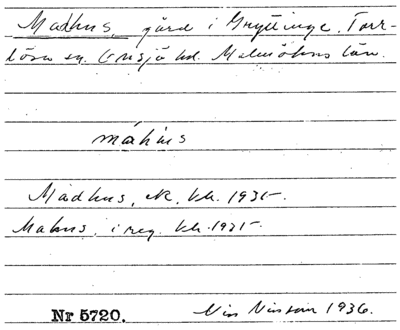 Madhus, gård i Gryttinge, Torr-
lösa sn. Onsjö hd. Malmöhus län.
máhus
Madhus, ek. kh. 1935
Mahus, i reg. kh. 1935
Nr 5720. Nils Nilsson 1936.